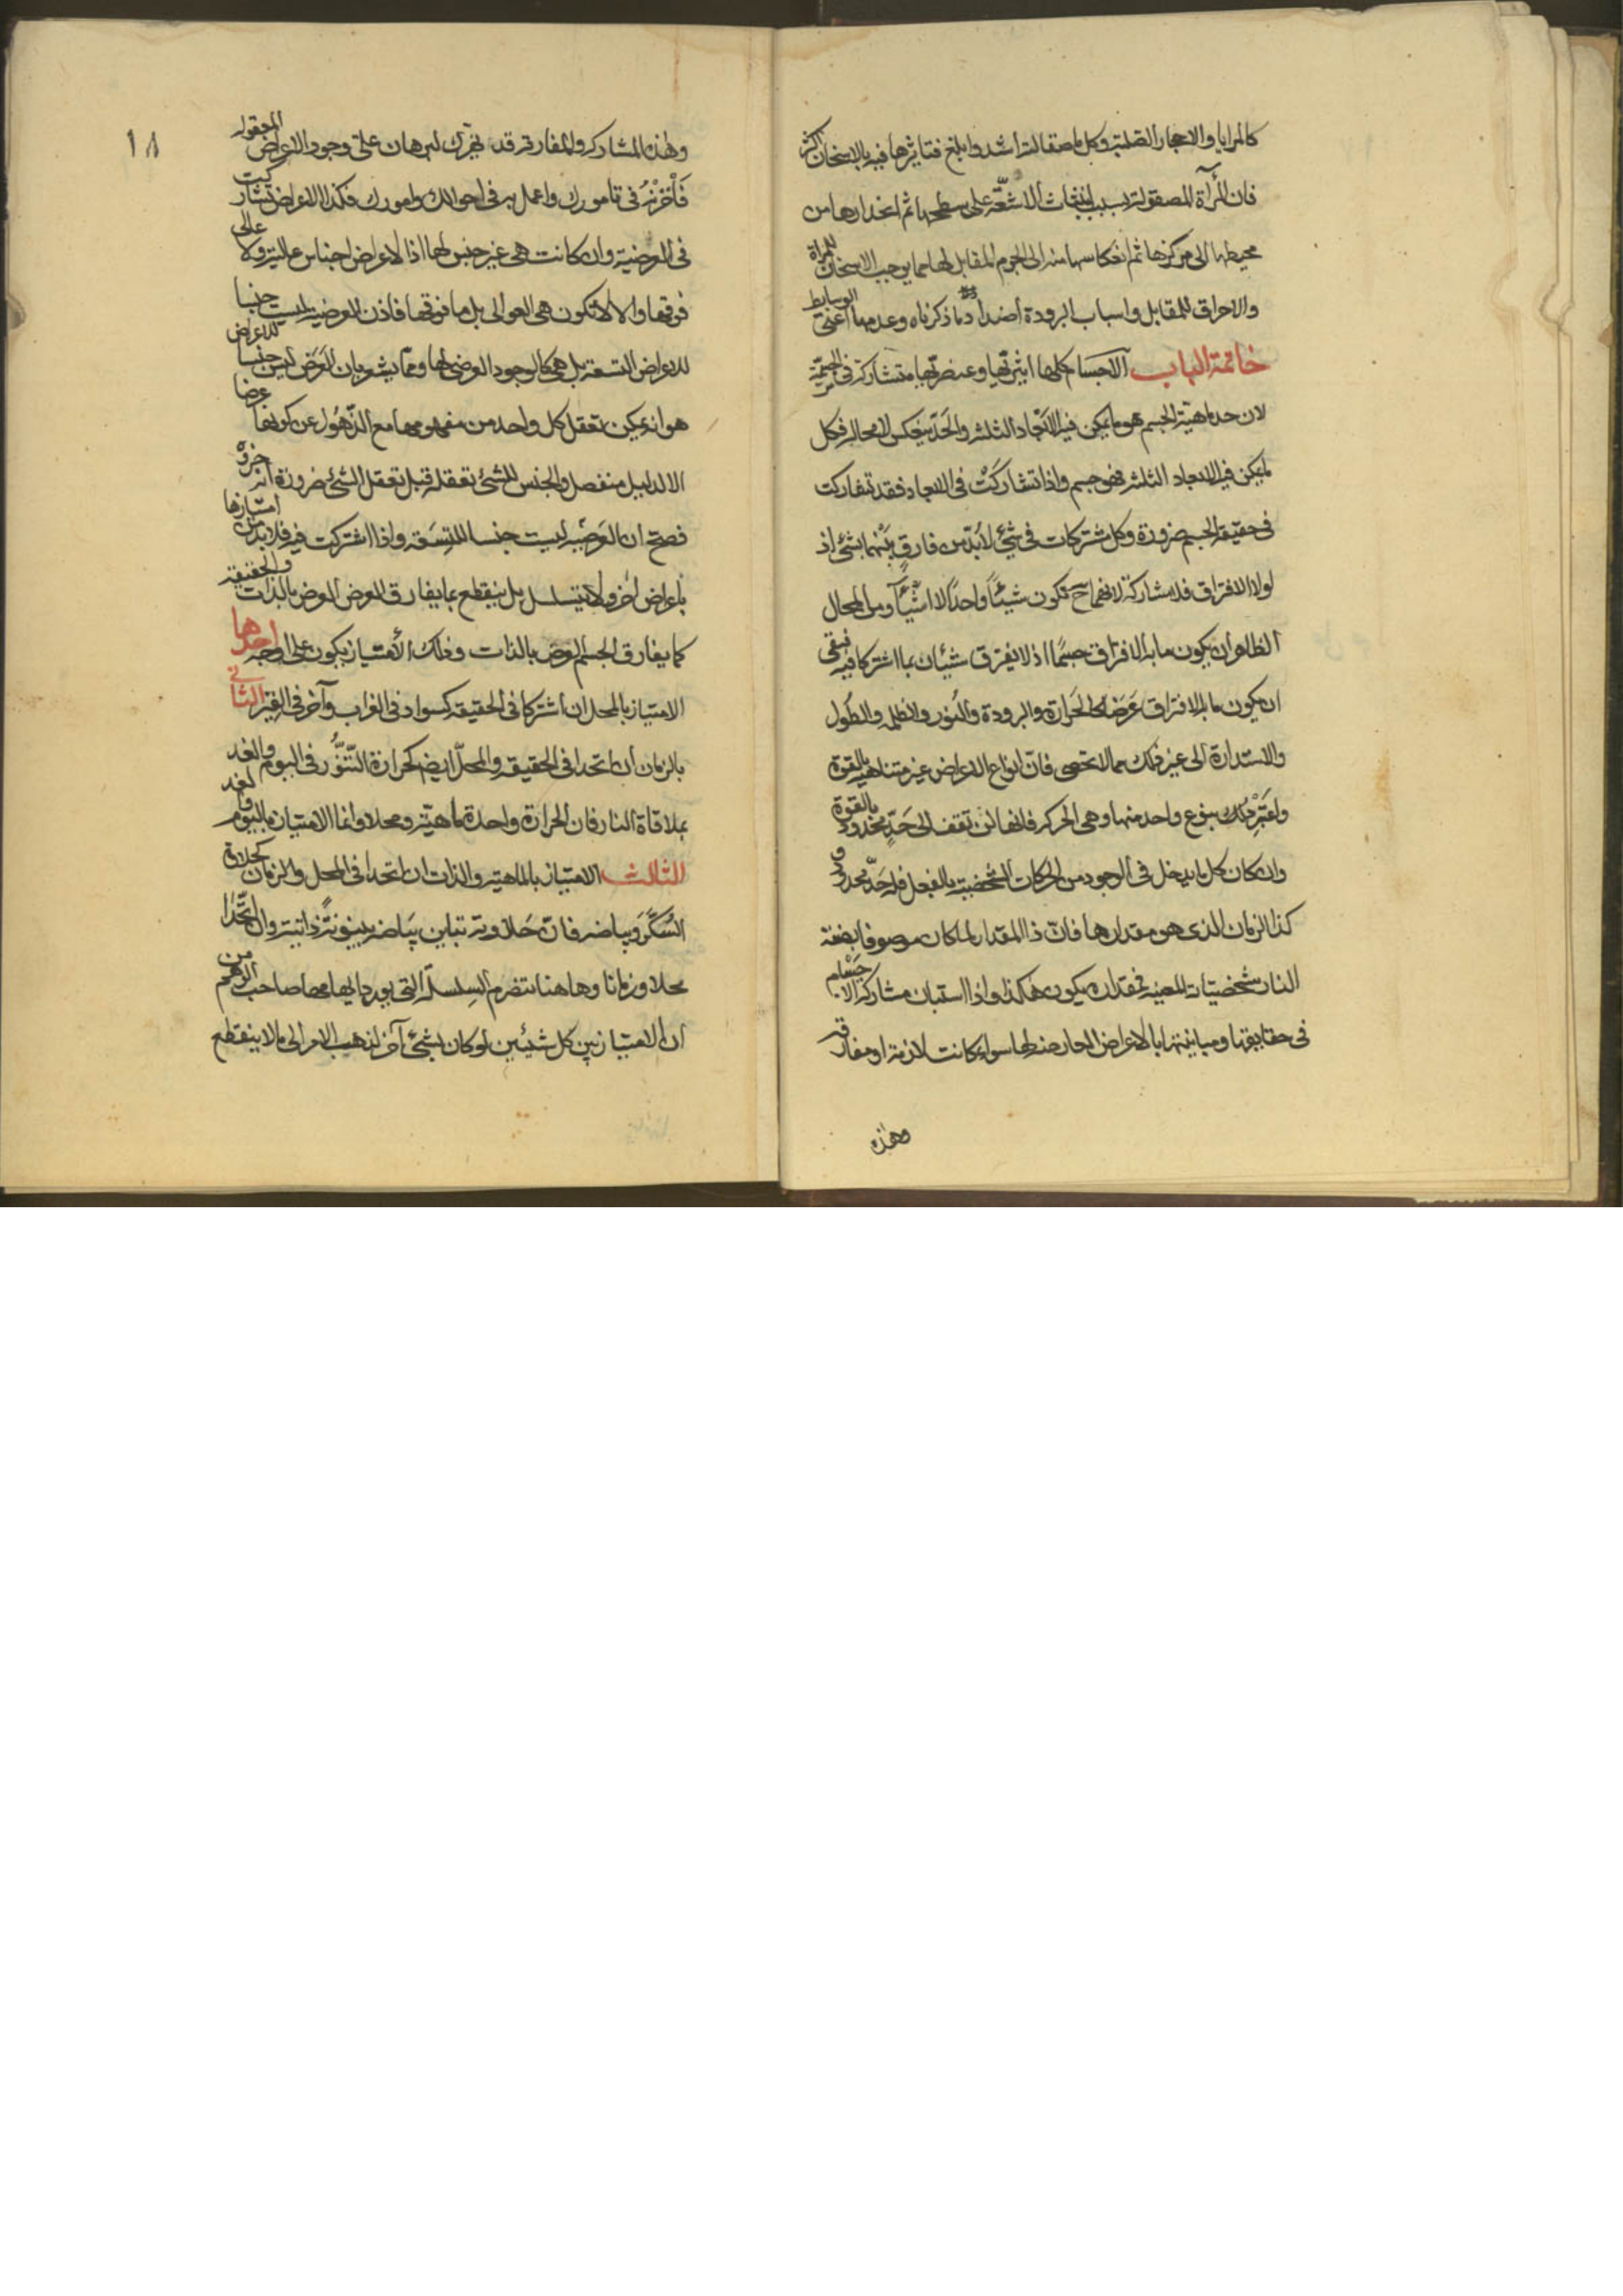 كالمرايا والاحجار الصلبة وكل ما صقالته اشد وابلغ فتاثيرها فيه بالاسخان اكثر
فان المرآة المصقولة بسبب انبثاث الاشعّة على سطحها ثم انحدارها من
محيطها الى مركزها ثم انعكاسها منه الى الجرم المقابل لها مما يوجب الاسخان للمراة
والاحراق للمقابل واسباب البرودة اضداد ما ذكرناه وعدمها اعنى الوسايط
خاتمة الباب الاجسام كلها اثيريّها وعنصريّها متشاركة فى الجسميّة
لان حد ماهيّة الجسم هو ما يمكن فيه الابعاد الثلثة والحَدّ ينعكس لا محالة فكل
ما يمكن فيه الابعاد الثلثة فهو جسم واذا تشاركَتْ فى الابعاد فقد تشاركت
فى حقيقة الجسم ضرورة وكل مشتركات فى شئ لابُدّ من فارقٍ بَيْنهما بشئ اذ
لولا الافتراق فلا مشاركة لانهما ح تكون شيئًا واحدًا لا اشيَّأ ومن المحال
الظاهر ان يكون ما به الافتراق جسمًا اذ لا يفترق شيئان بما اشتركا فيه فبقى
ان يكون ما به الافتراق عَرَضًا كالحَرارة والبرودة والنُور والظلمة والطُول
والاستدارة الى غير ذلك مما لا تحصى فانّ انواع الاعراض غير متناهية بالقوة
واعتَبِرْ ذلك بنوع واحد منها وهى الحركة فانها لن تقف الى حَدٍّ محدود بالقوة
وان كان كل ما يدخل فى الوجود من الحركات الشخصية بالفعل فله حَدّ محدود و
كذا الزمان الذى هو مقدارها فانّ ذا المقدار لما كان موصوفا بصفة
النار شخصيات المعينة فمقداره يكون هكذا واذا استبان مشاركة الاجسام
فى حقايقها ومباينتها بالاعراض العارضة لها سواء كانت لازمة او مفارقة
وهذه
١٨
وهذه المشاركة والمفارقة قد يخبرك لبرهان على وجود الاعراض المعقولة
فَاْخزنْهُ فى تامورك واعمل به فى احوالك وامورك فكذا الاعراض تشاركت
فى العرضية وان كانت هى غير جنس لها اذ الاعراض اجناس عالية ولا عالى
فوقها والا لا تكون هى العوالى بل ما فوقها فاذن العرضية ليست جنسا
للاعراض التسعة بل هى كالوجود العرضى لها ومما يشعر بان العَرَض ليس جنسا للاعراض
هو انه يمكن تعقل كل واحد من مفهومها مع الذّهُول عن كونها عرضا
الا لدليل منفصل والجنس للشئ تعقله قبل تعقل الشئ ضرورة انه جزؤه
فصح ان العرضية ليست جنسا للتسعة واذا اشتركت فيه فلا بد من امتيازها
باعراض اخر ولا يتسلسل بل ينقطع بما يفارق العرض العرض بالذات والحقيقة
كما يفارق الجسم العرض بالذات وذلك الامتياز يكون على اوجه احدها
الامتياز بالمحل ان اشتركا فى الحقيقة كسواد فى الغراب وآخر فى القير الثانى
بالزمان ان اتحدا فى الحقيقة والمحلّ ايضا كحرارة التنّوُّر فى اليوم والغد
بملاقاة النار فان الحرارة واحدة ماهيّة ومحلا وانما الامتياز باليوم والغد
الثالث الامتياز بالماهية والذات ان اتحدا فى المحل والزمان كحلاوة
السُكَّر وبياضه فانّ حَلاوته تباين بياضه بينونةً ذاتية وان اتّحَدَا
محلا وزمانا وها هنا تنصرم السِلسلة التى يوردها صاحب الوهم من
ان الامتياز بين كل شيئين لو كان بشئ آخر لذهب الامر الى ما لا ينقطع